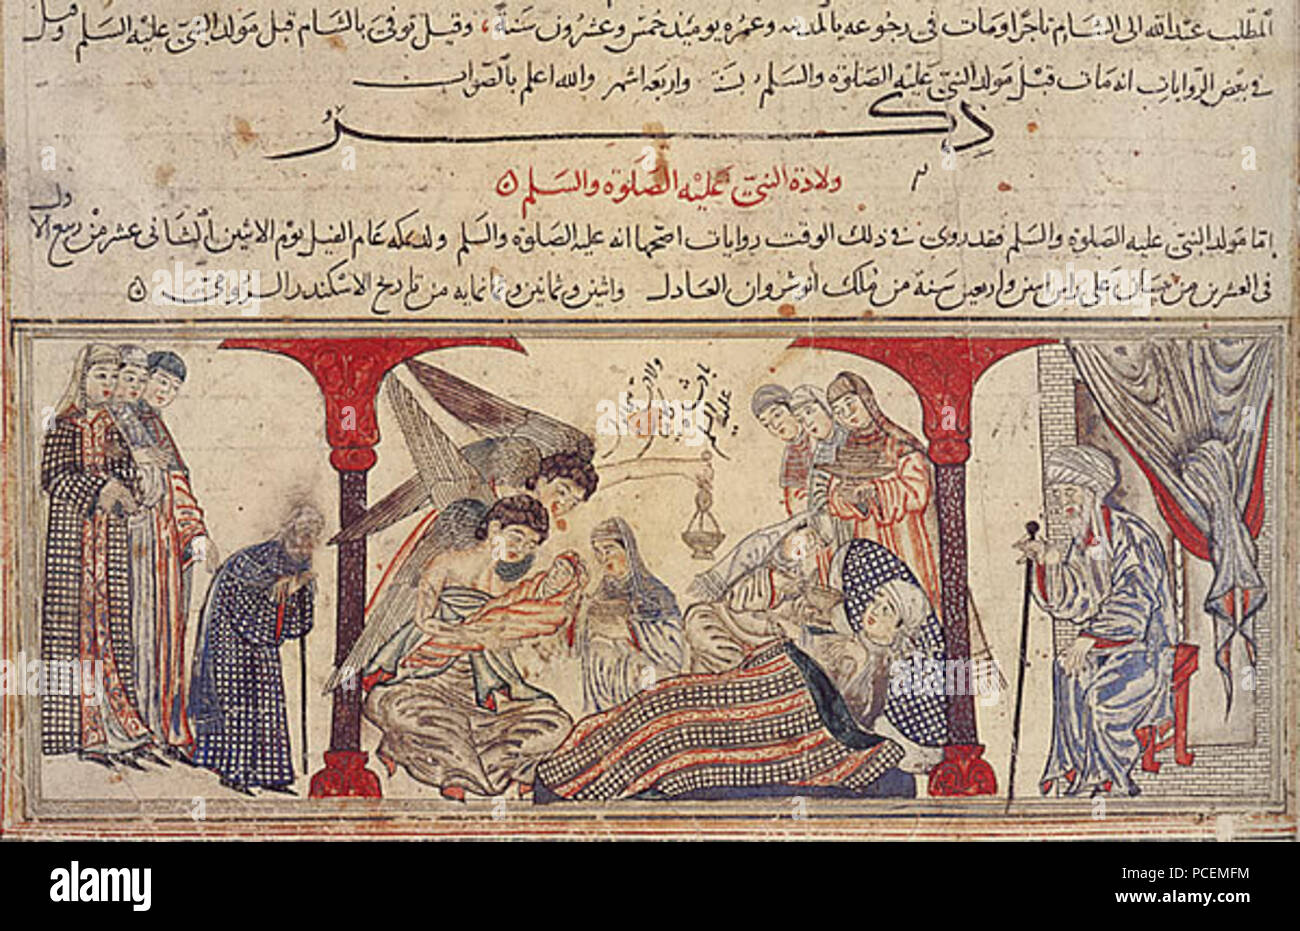 المطلب عبد الله الى الشام تاجرا ومات فى رجوعه بالمدينه وعمره يوميذ خمس وعشرون سنة، وقيل توفى بالشام قبل مولد النبى عليه السلم وقيل
فى بعض الروايات انه مات قبل مولد النبى عليه الصلوة والسلم بسنة واربعة اشهر والله اعلم بالصواب
ذكر
ولادة النبى عليه الصلوة والسلم
اما مولد النبى عليه الصلوة والسلم فقد روى فى ذلك الوقت روايات اصحها انه عليه الصلوة والسلم ولد بمكه عام الفيل يوم الاثنين الثانى عشر من ربيع الاول
فى العشرين من نيسان على راس اثنين واربعين سنة من ملك أنوشروان العادل واثنين وثمانين وثمانمايه من تاريخ الاسكندر الرومى
عليه السلم
alamy
Image ID: PCEMFM
www.alamy.com